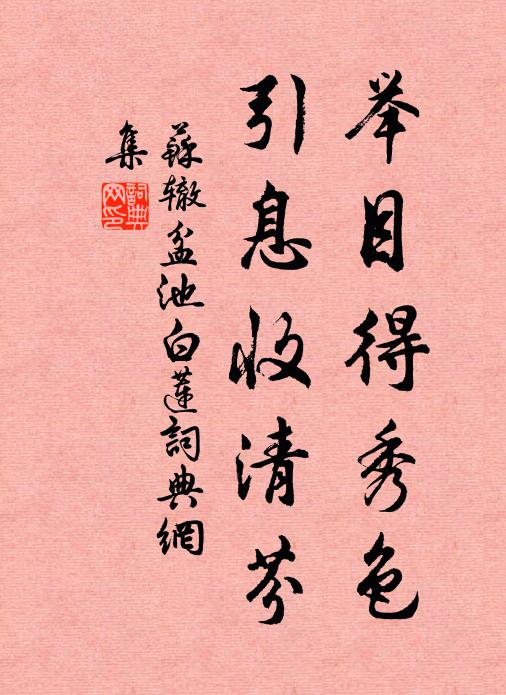 举目得秀色
引息收清芬
蘇辙盆池白蓮詞典網
集
詞典
网印